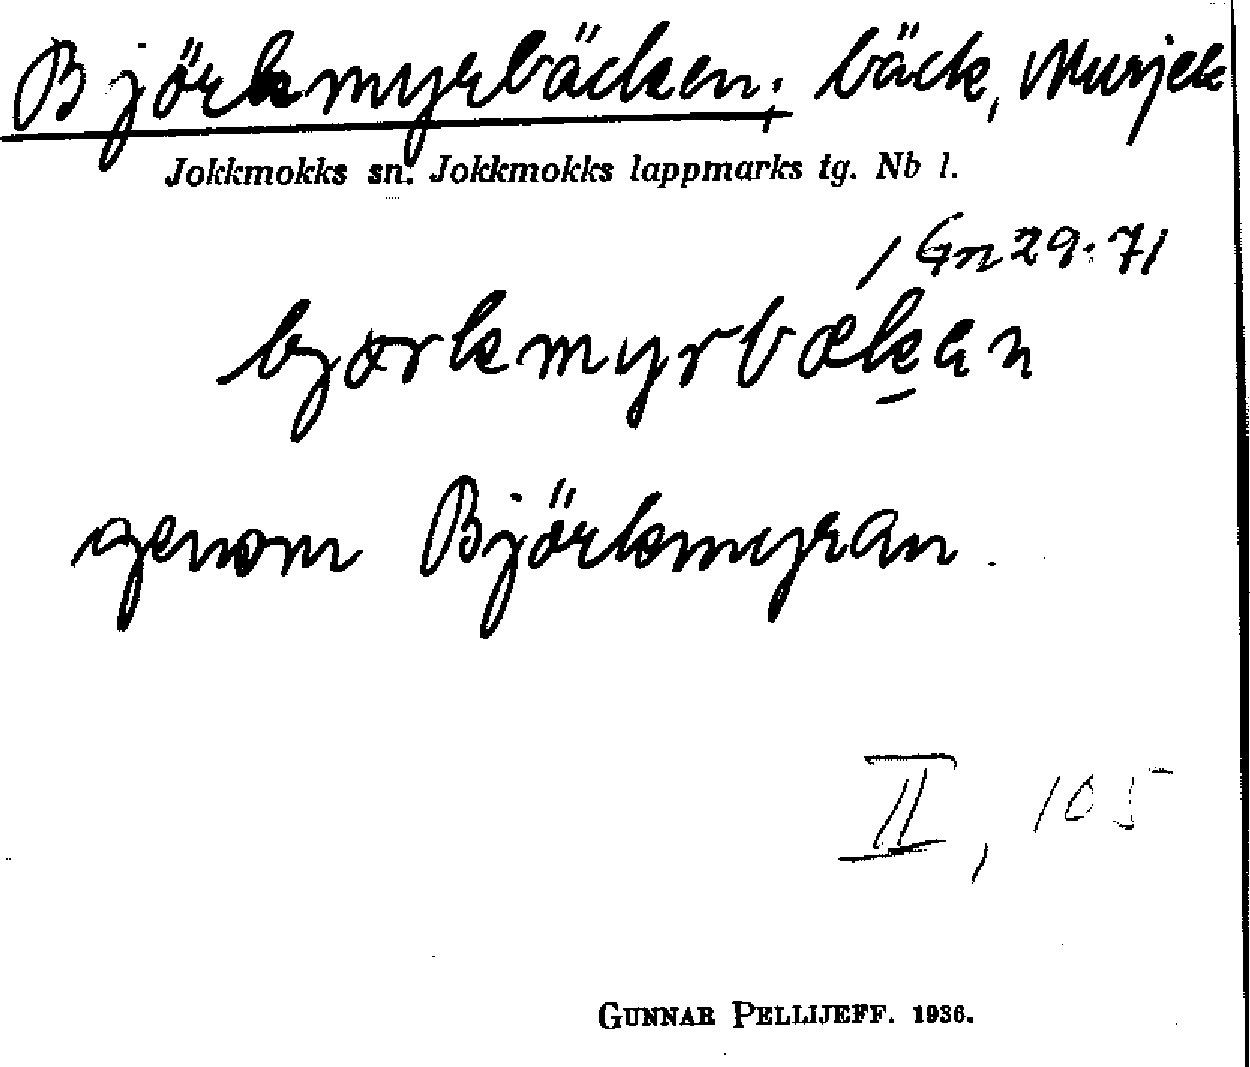 Björkmyrbäcken; bäck, Murjek
Jokkmokks sn. Jokkmokks lappmarks tg. Nb l.
/ Gn 29:71
bjørkmyrbæk̲en
genom Björkmyran.
II, 105
GUNNAR PELLIJEFF. 1936.